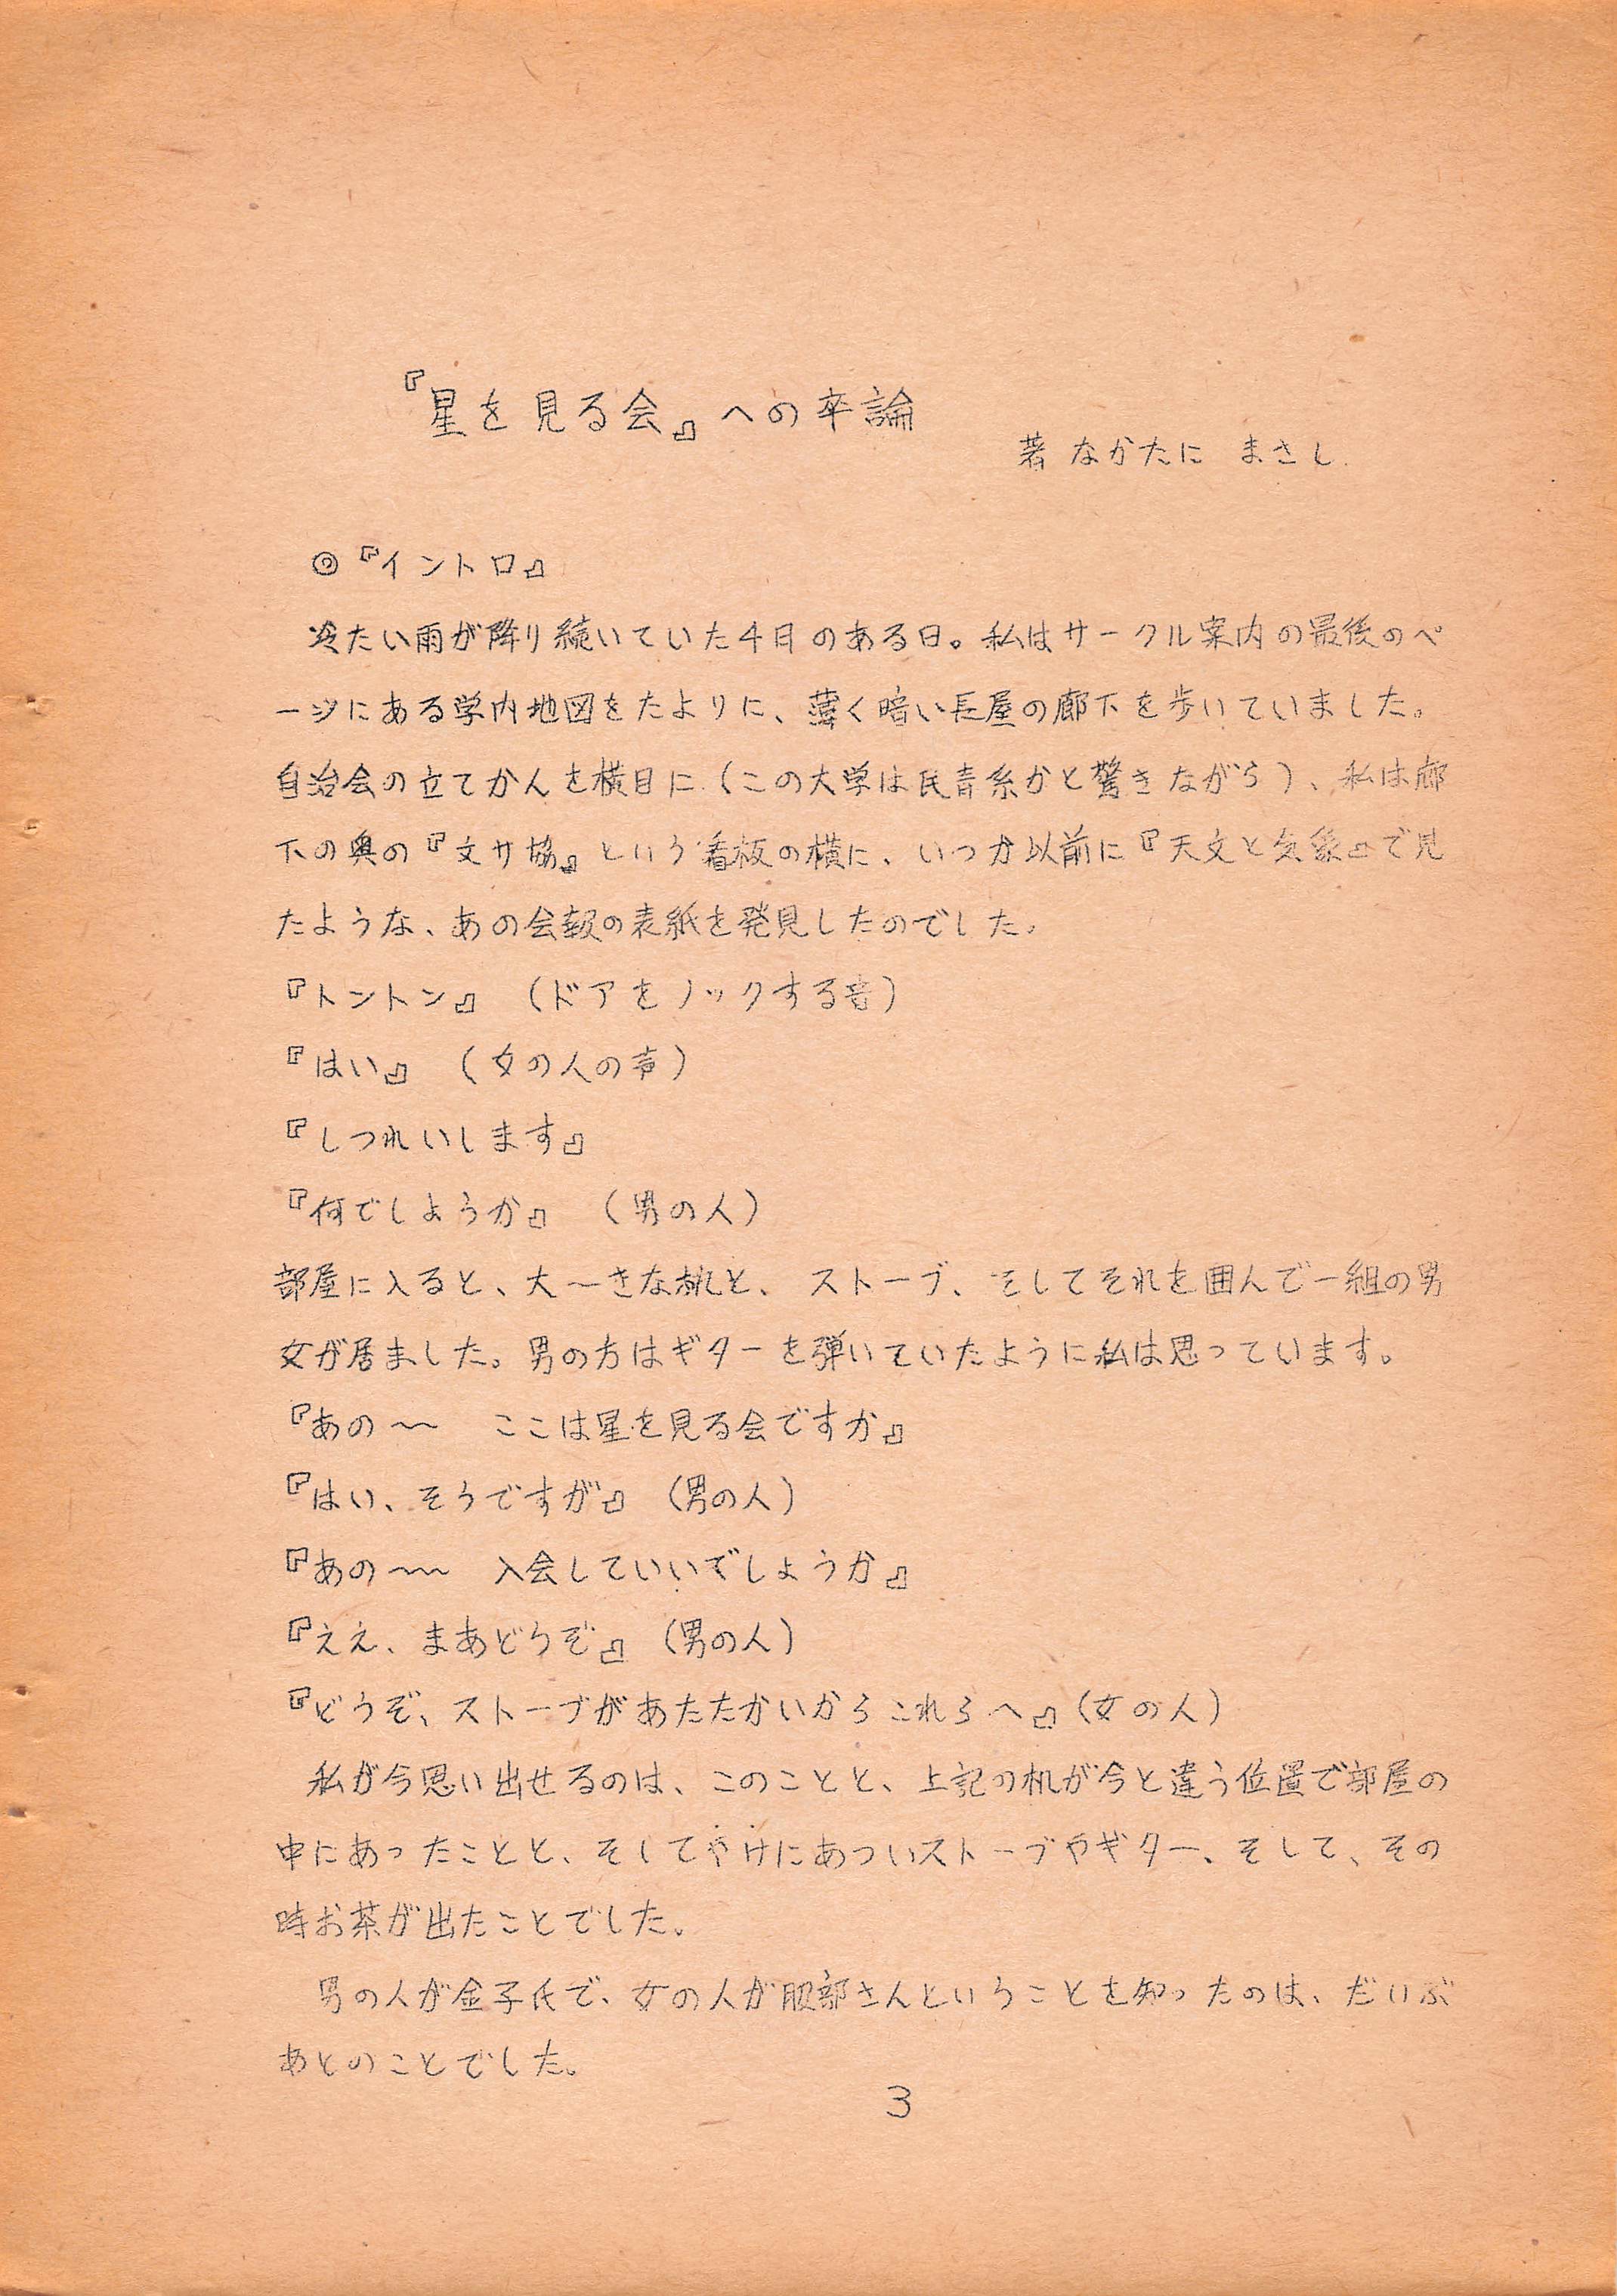 『星を見る会』への卒論
著 なかたに まさし.
◎『イントロ』
冷たい雨が降り続いていた4月のある日。私はサークル案内の最後のペ
ージにある学内地図をたよりに、薄く暗い長屋の廊下を歩いていました。
自治会の立てかんを横目に(この大学は民青系かと驚きながら)、私は廊
下の奥の『文サ協』という看板の横に、いつか以前に『天文と気象』で見
たような、あの会報の表紙を発見したのでした。
『トントン』 (ドアをノックする音)
『はい』 (女の人の声)
『しつれいします』
『何でしようか』 (男の人)
部屋に入ると、大〜きな机と、ストーブ、そしてそれを囲んで一組の男
女が居ました。男の方はギターを弾いていたように私は思っています。
『あの〜 ここは星を見る会ですか』
『はい、そうですが』 (男の人)
『あの〜〜 入会していいでしょうか』
『ええ、まあどうぞ』 (男の人)
『どうぞ、ストーブがあたたかいからこれらへ』(女の人)
私が今思い出せるのは、このことと、上記の机が今と違う位置で部屋の
中にあったことと、そしてやけにあついストーブやギター、そして、その
時お茶が出たことでした。
男の人が金子氏で、女の人が服部さんということを知ったのは、だいぶ
あとのことでした。
3